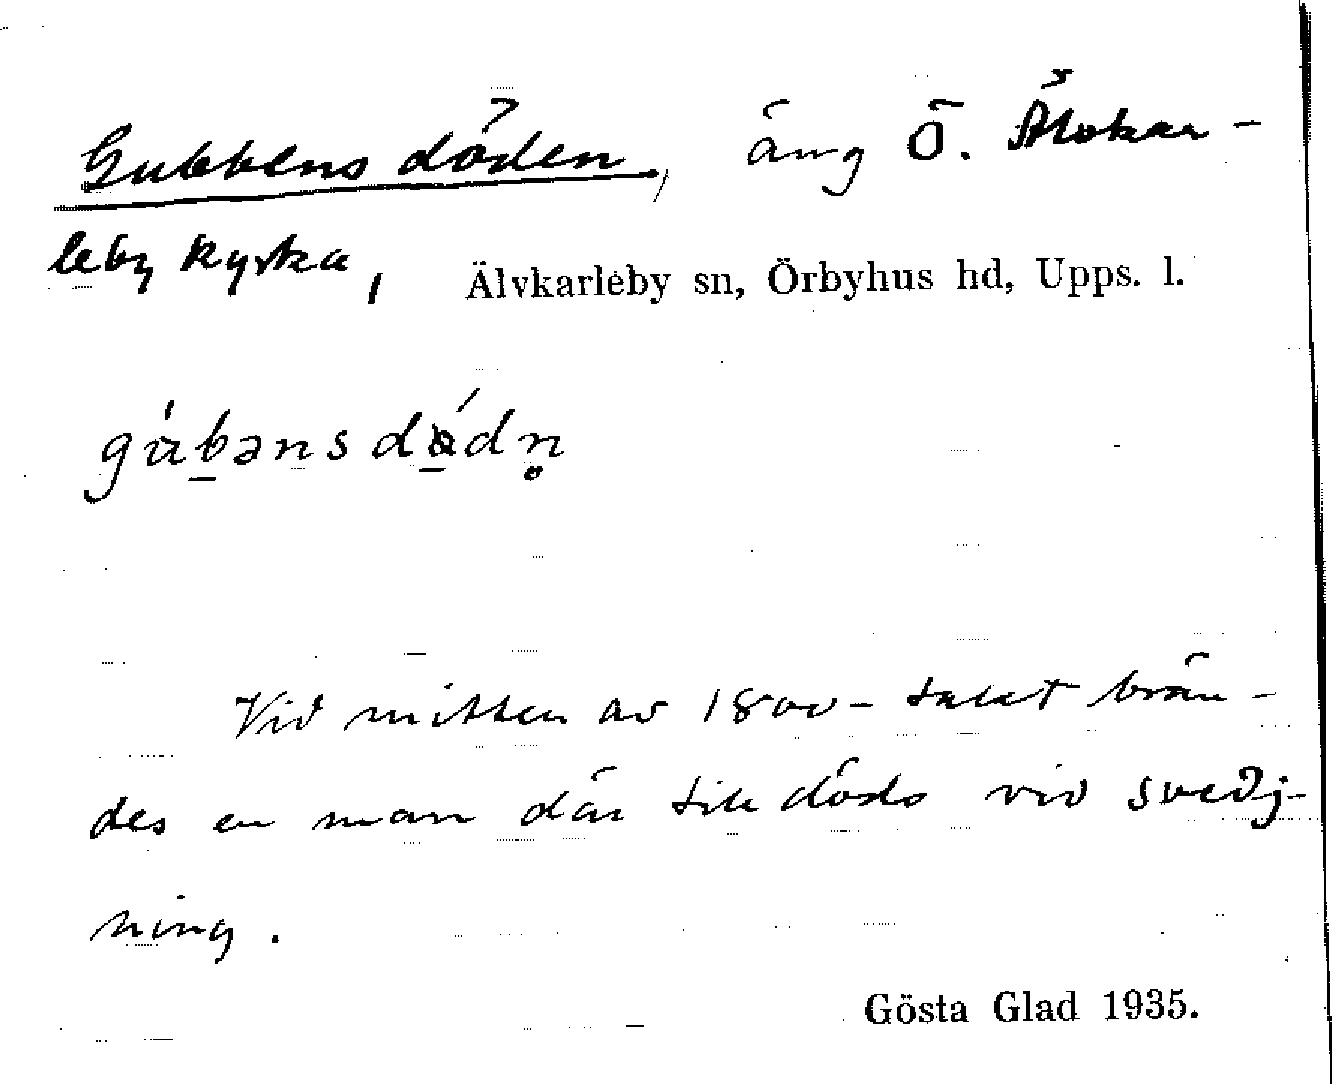 Gubbens döden, äng Ö. Älvkar-
leby kyrka, Älvkarleby sn, Örbyhus hd, Upps. l.
gúbəns dødn̥
Vid mitten av 1800-talet brän-
des en man där till döds vid svedj-
ning.
Gösta Glad 1935.